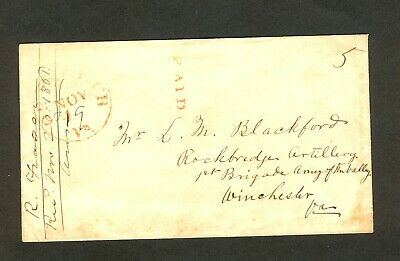 5
PAID
NOV
Mr L. M. Blackford
Rockbridge Artillery
1st Brigade Army of the Valley
Winchester
Va
R.
Rec'd Nov 26. 1861